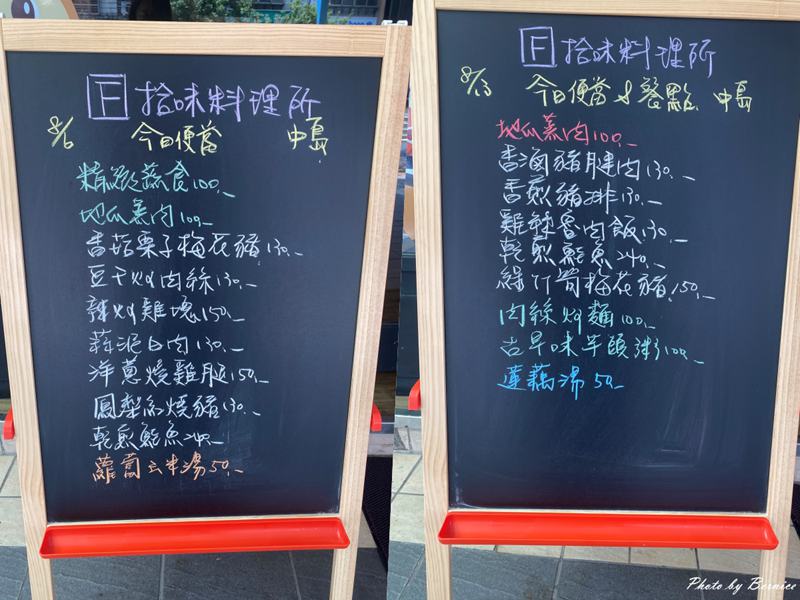 F 拾味料理所
8/6 今日便當 中島
精緻蔬食100.-
地瓜蒸肉100.-
香菇栗子梅花豬130.-
豆干炒肉絲130.-
辣炒雞塊150.-
蒜泥白肉130.-
洋蔥燒雞腿150.-
鳳梨紅燒豬130.-
乾煎鮭魚240.-
蘿蔔玉米湯50.-
F 拾味料理所
8/13 今日便當&餐點 中島
地瓜蒸肉100.-
香滷豬腱肉130.-
香煎豬排130.-
雞辣香肉飯130.-
乾煎鮭魚240.-
綠竹筍梅花豬150.-
肉絲炒麵100.-
古早味芋頭粥100.-
蓮藕湯50.-
Photo by Bernice